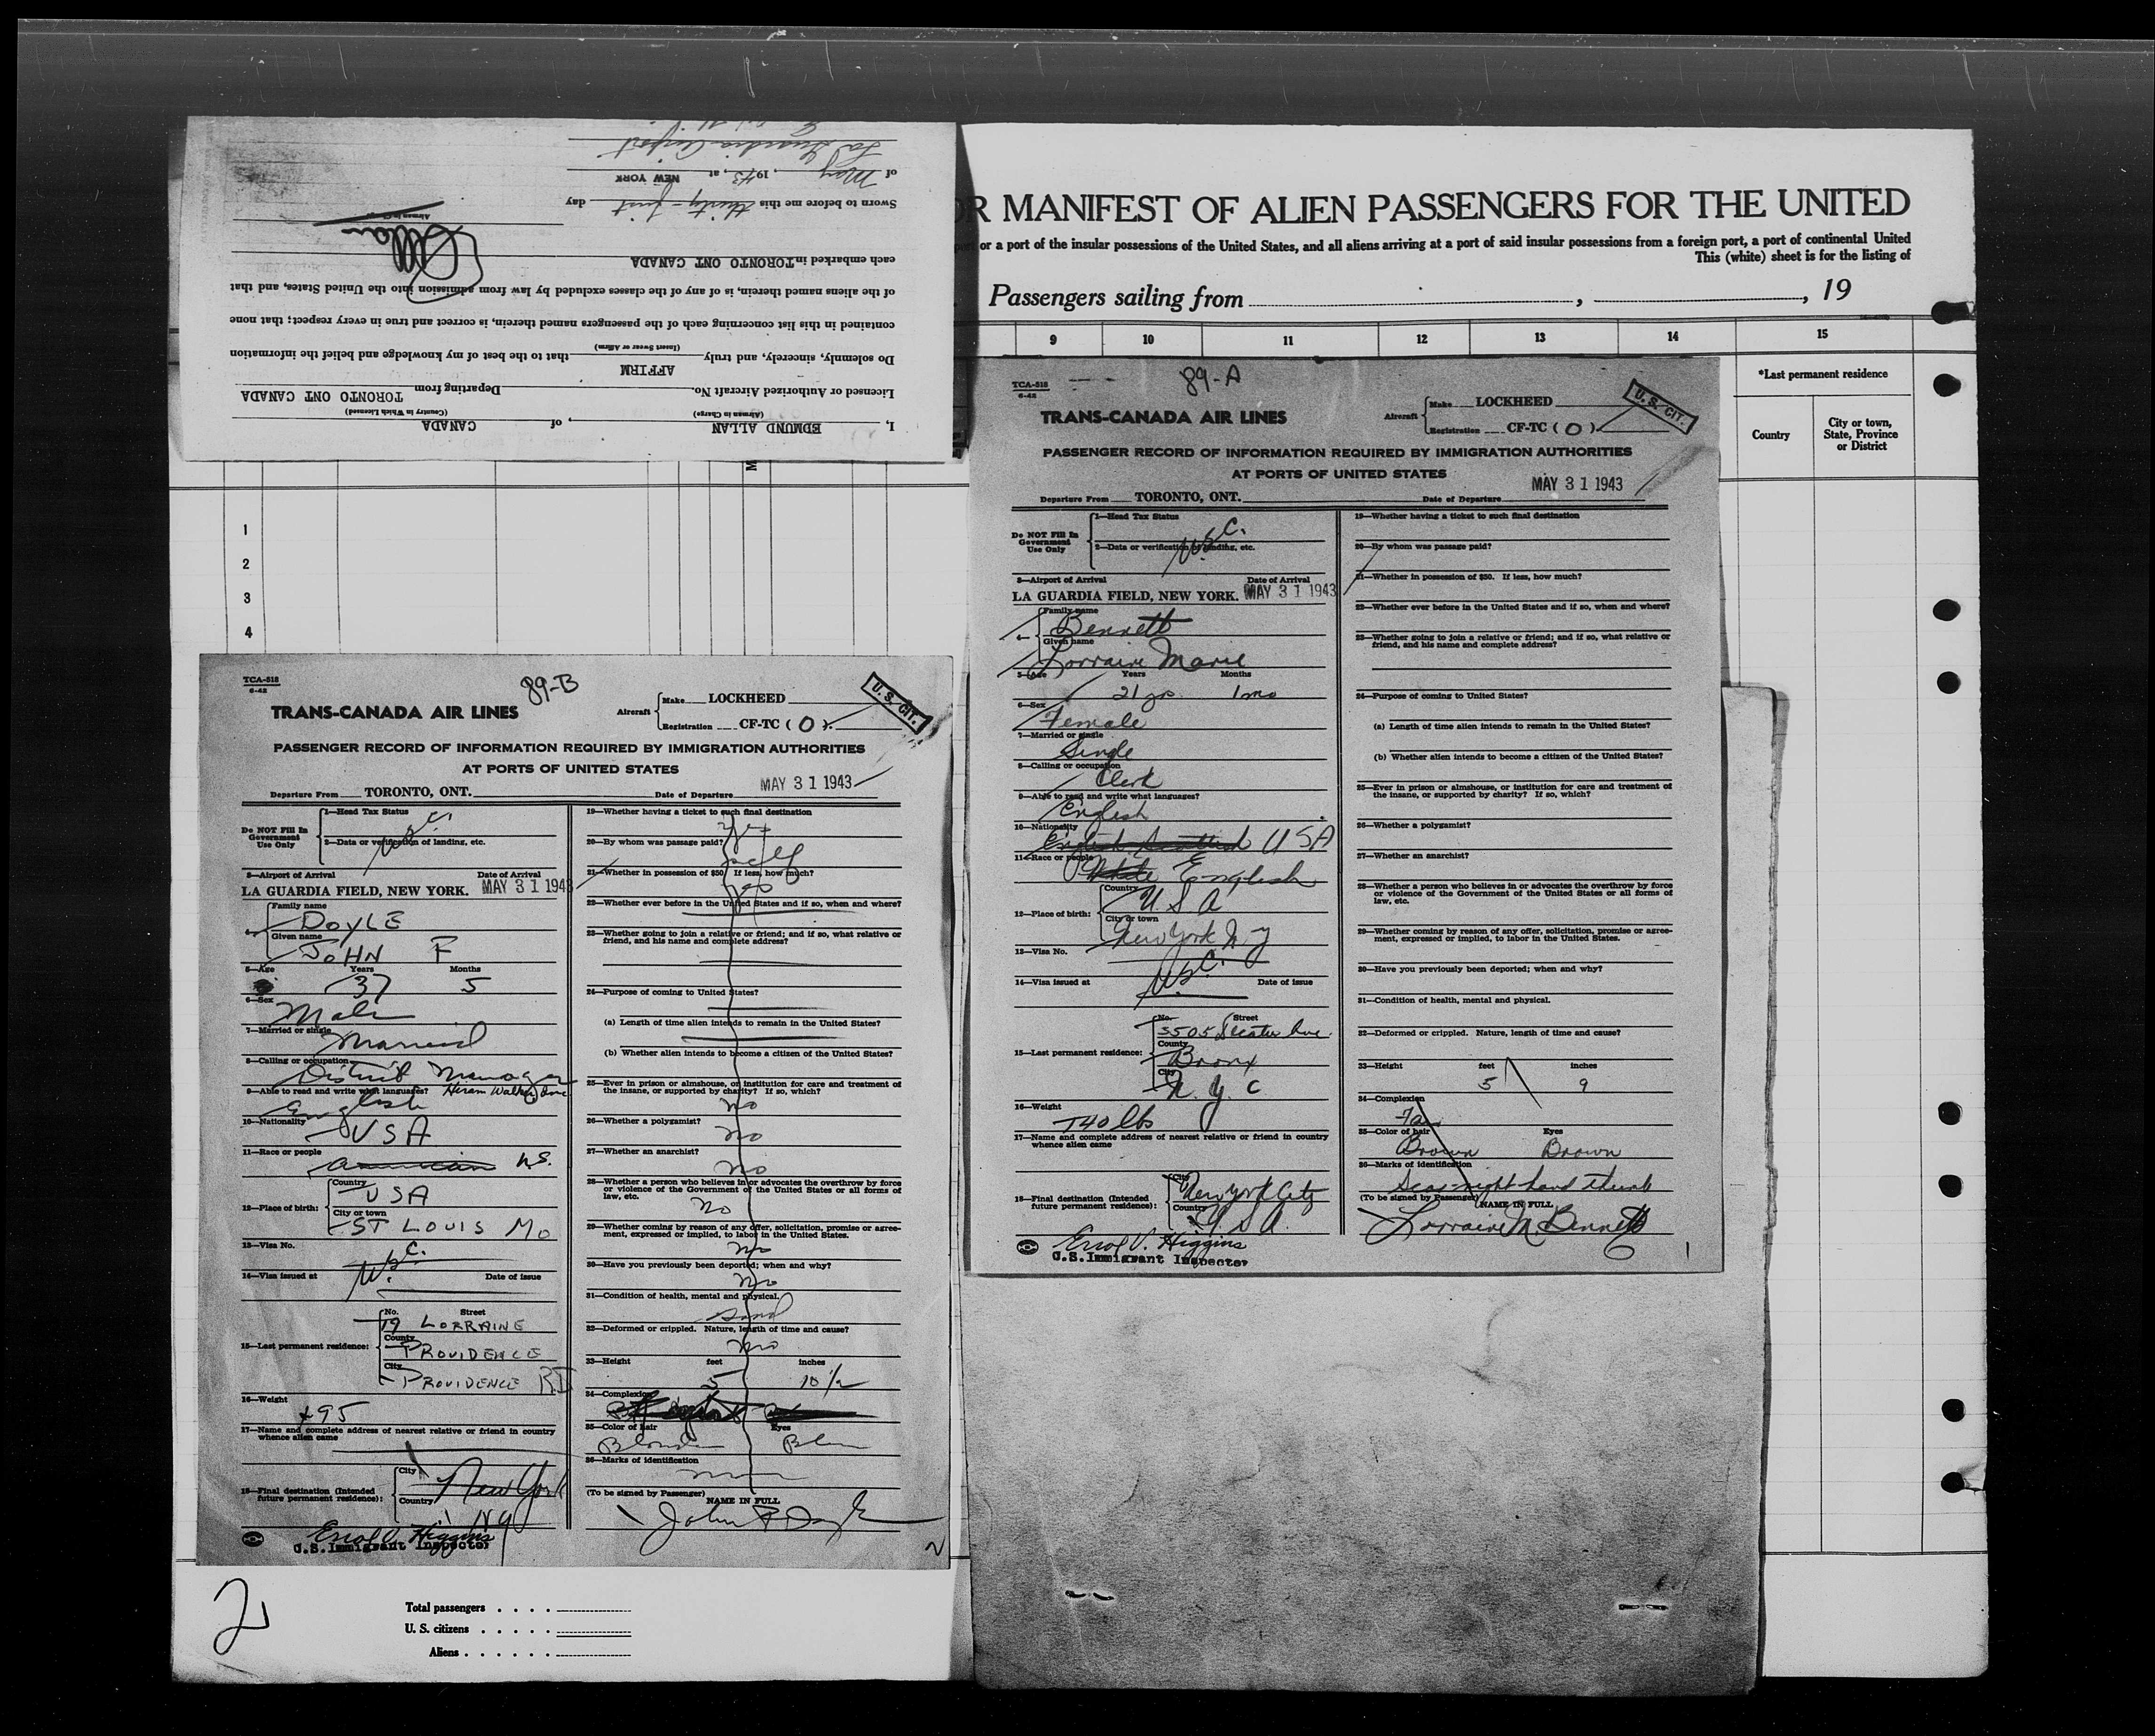 I, EDMUND ALLAN, of CANADA
(Airman in Charge) (Country in Which Licensed)
Licensed or Authorized Aircraft No. Departing from TORONTO ONT CANADA
Do solemnly, sincerely, and truly AFFIRM that to the best of my knowledge and belief the information
(Insert Swear or Affirm)
contained in this list concerning each of the passengers named therein, is correct and true in every respect; that none
of the aliens named therein, is of any of the classes excluded by law from admission into the United States, and that
each embarked in TORONTO ONT CANADA
Allan
Sworn to before me this thirty-first day
of May, 1943, at NEW YORK
La Guardia Airport
R MANIFEST OF ALIEN PASSENGERS FOR THE UNITED
or a port of the insular possessions of the United States, and all aliens arriving at a port of said insular possessions from a foreign port, a port of continental United
This (white) sheet is for the listing of
Passengers sailing from , , 19
9 10 11 12 13 14 15
*Last permanent residence
Country
City or town, State, Province or District
1
2
3
4
TCA-518
6-42
89-B
TRANS-CANADA AIR LINES
Aircraft Make LOCKHEED
Registration CF-TC ( O ).
U. S. CIT.
PASSENGER RECORD OF INFORMATION REQUIRED BY IMMIGRATION AUTHORITIES
AT PORTS OF UNITED STATES
Departure From TORONTO, ONT. Date of Departure MAY 31 1943
Do NOT Fill In Government Use Only
1—Head Tax Status
USC.
2—Data or verification of landing, etc.
3—Airport of Arrival Date of Arrival
LA GUARDIA FIELD, NEW YORK. MAY 31 1943
4— Family name
DOYLE
Given name
JOHN F
5—Age Years Months
37 5
6—Sex
Male
7—Married or single
Married
8—Calling or occupation
District Manager
9—Able to read and write what languages? Hiram Walker Inc
English
10—Nationality
USA
11—Race or people
American
12—Place of birth: Country
USA
City or town
ST LOUIS Mo
13—Visa No.
USC.
14—Visa issued at Date of issue
15—Last permanent residence: No. Street
79 LORRAINE
County
PROVIDENCE
City
PROVIDENCE RI
16—Weight
195
17—Name and complete address of nearest relative or friend in country
whence alien came
18—Final destination (Intended
future permanent residence):
City
New York
Country
NY
Errol V. Higgins
U.S. Immigrant Inspector
19—Whether having a ticket to such final destination
yes
20—By whom was passage paid?
self
21—Whether in possession of $50. If less, how much?
yes
22—Whether ever before in the United States and if so, when and where?
23—Whether going to join a relative or friend; and if so, what relative or
friend, and his name and complete address?
24—Purpose of coming to United States?
(a) Length of time alien intends to remain in the United States?
(b) Whether alien intends to become a citizen of the United States?
25—Ever in prison or almshouse, or institution for care and treatment of
the insane, or supported by charity? If so, which?
no
26—Whether a polygamist?
no
27—Whether an anarchist?
no
28—Whether a person who believes in or advocates the overthrow by force
or violence of the Government of the United States or all forms of
law, etc.
no
29—Whether coming by reason of any offer, solicitation, promise or agree-
ment, expressed or implied, to labor in the United States.
no
30—Have you previously been deported; when and why?
no
31—Condition of health, mental and physical.
Good
32—Deformed or crippled. Nature, length of time and cause?
no
33—Height feet inches
5 10 1/2
34—Complexion
35—Color of hair Eyes
Blonde Blue
36—Marks of identification
(To be signed by Passenger)
NAME IN FULL
John F Doyle
2
2
Total passengers . . . .
U. S. citizens . . . . .
Aliens . . . . . .
TCA-518
6-42
89-A
TRANS-CANADA AIR LINES
Aircraft Make LOCKHEED
Registration CF-TC ( O )
U. S. CIT.
PASSENGER RECORD OF INFORMATION REQUIRED BY IMMIGRATION AUTHORITIES
AT PORTS OF UNITED STATES
Departure From TORONTO, ONT. Date of Departure MAY 31 1943
Do NOT Fill In Government Use Only
1—Head Tax Status
USC.
2—Data or verification of landing, etc.
3—Airport of Arrival Date of Arrival
LA GUARDIA FIELD, NEW YORK. MAY 31 1943
4— Family name
Bennett
Given name
Lorraine Marie
5—Age Years Months
21 yrs 1 mo
6—Sex
Female
7—Married or single
Single
8—Calling or occupation
Clerk
9—Able to read and write what languages?
English
10—Nationality
English Scottish USA
11—Race or people
White English
12—Place of birth: Country
U.S.A
City or town
New York N-Y
13—Visa No.
USC.
14—Visa issued at Date of issue
15—Last permanent residence: No. Street
3505 Decatur Ave.
County
Bronx
City
N.Y.C
16—Weight
140 lbs
17—Name and complete address of nearest relative or friend in country
whence alien came
18—Final destination (Intended
future permanent residence):
City
New York City
Country
U.S.A
Errol V. Higgins
U.S. Immigrant Inspector
19—Whether having a ticket to such final destination
20—By whom was passage paid?
21—Whether in possession of $50. If less, how much?
22—Whether ever before in the United States and if so, when and where?
23—Whether going to join a relative or friend; and if so, what relative or
friend, and his name and complete address?
24—Purpose of coming to United States?
(a) Length of time alien intends to remain in the United States?
(b) Whether alien intends to become a citizen of the United States?
25—Ever in prison or almshouse, or institution for care and treatment of
the insane, or supported by charity? If so, which?
26—Whether a polygamist?
27—Whether an anarchist?
28—Whether a person who believes in or advocates the overthrow by force
or violence of the Government of the United States or all forms of
law, etc.
29—Whether coming by reason of any offer, solicitation, promise or agree-
ment, expressed or implied, to labor in the United States.
30—Have you previously been deported; when and why?
31—Condition of health, mental and physical.
32—Deformed or crippled. Nature, length of time and cause?
33—Height feet inches
5 9
34—Complexion
Fair
35—Color of hair Eyes
Brown Brown
36—Marks of identification
Scar right hand thumb
(To be signed by Passenger)
NAME IN FULL
Lorraine M. Bennett
1